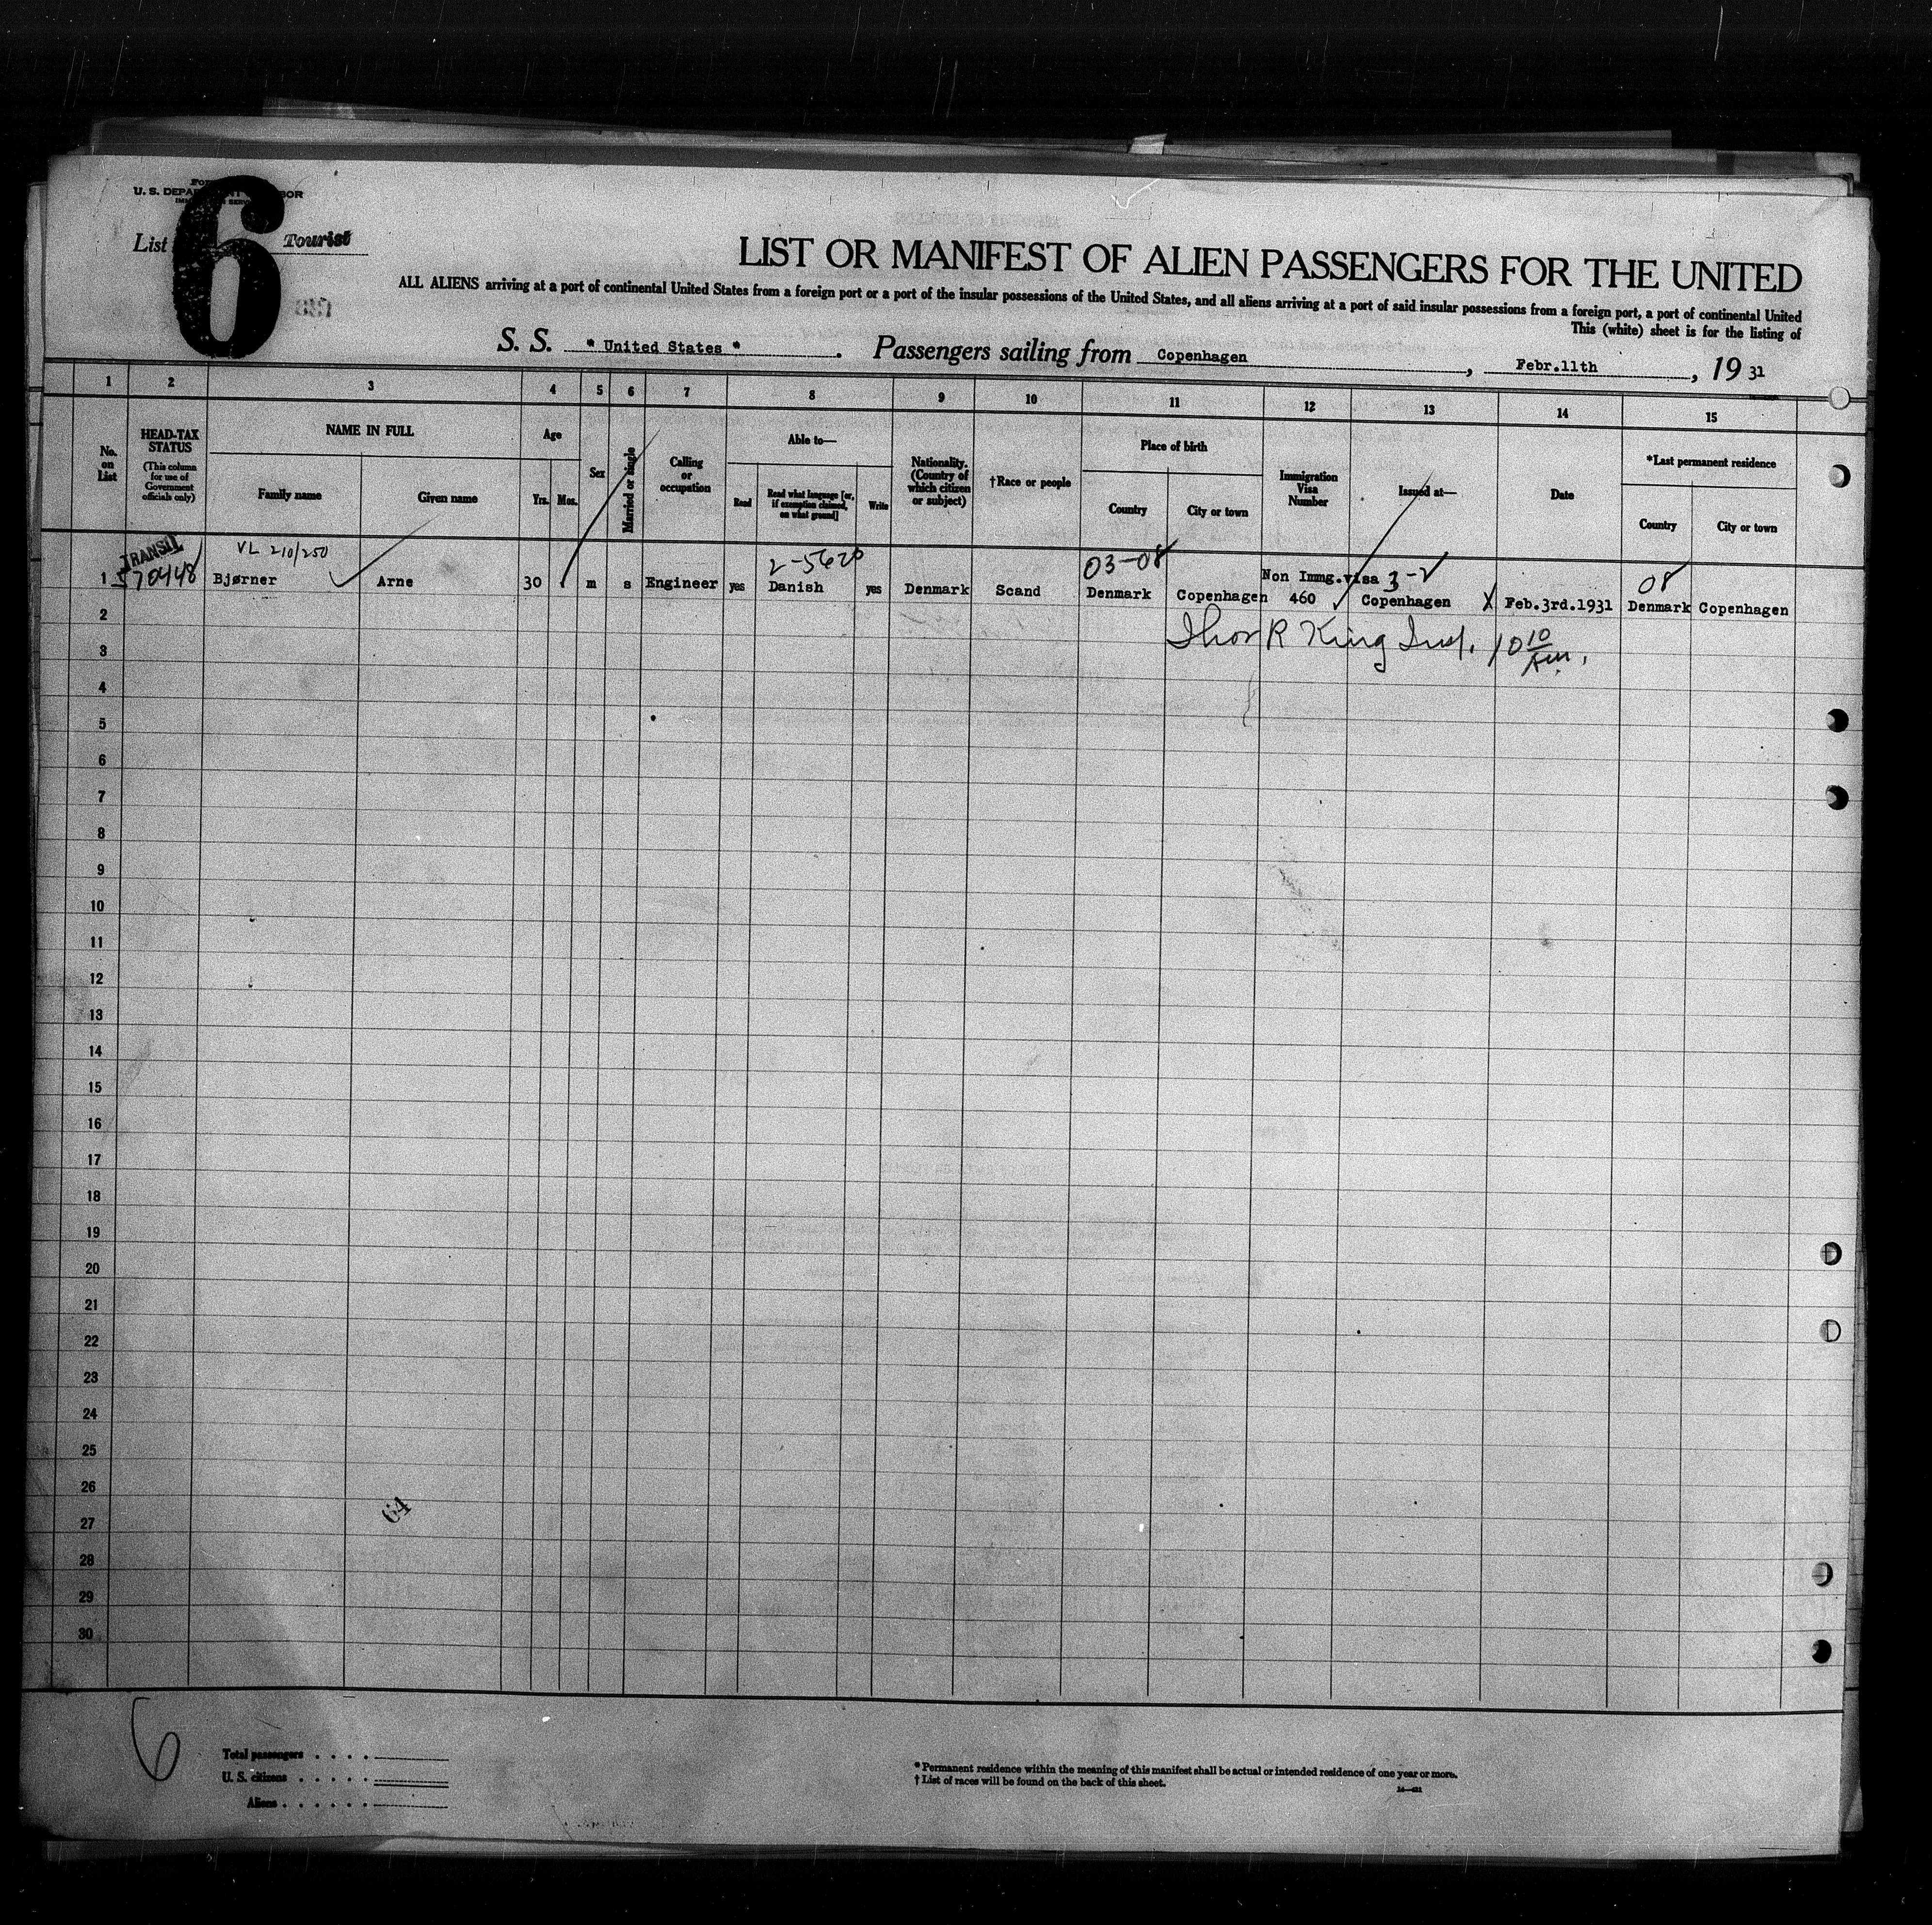 U. S. DEPA
List
6
Tourist
LIST OR MANIFEST OF ALIEN PASSENGERS FOR THE UNITED
ALL ALIENS arriving at a port of continental United States from a foreign port or a port of the insular possessions of the United States, and all aliens arriving at a port of said insular possessions from a foreign port, a port of continental United
This (white) sheet is for the listing of
S. S. " United States " . Passengers sailing from Copenhagen , Febr.11th , 19 31
1 2 3 4 5 6 7 8 9 10 11 12 13 14 15
No. on List
HEAD-TAX STATUS
(This column for use of Government officials only)
NAME IN FULL
Family name Given name
Age
Yrs. Mos.
Sex
Married or single
Calling or occupation
Able to—
Read
Read what language [or, if exemption claimed, on what ground]
Write
Nationality. (Country of which citizen or subject)
†Race or people
Place of birth
Country City or town
Immigration Visa Number
Issued at—
Date
*Last permanent residence
Country City or town
TRANSIT VL 210/250 2-5620 03-08 Non Immg.visa 3-2 08
1 570448 Bjørner Arne 30 m s Engineer yes Danish yes Denmark Scand Denmark Copenhagen 460 Copenhagen X Feb.3rd.1931 Denmark Copenhagen
2
R King Insp. 10 10 Am.
3
4
5
6
7
8
9
10
11
12
13
14
15
16
17
18
19
20
21
22
23
24
25
26
64
27
28
29
30
6
Total passengers . . . .
U. S. citizens . . . . .
Aliens . . . . . .
* Permanent residence within the meaning of this manifest shall be actual or intended residence of one year or more.
† List of races will be found on the back of this sheet.